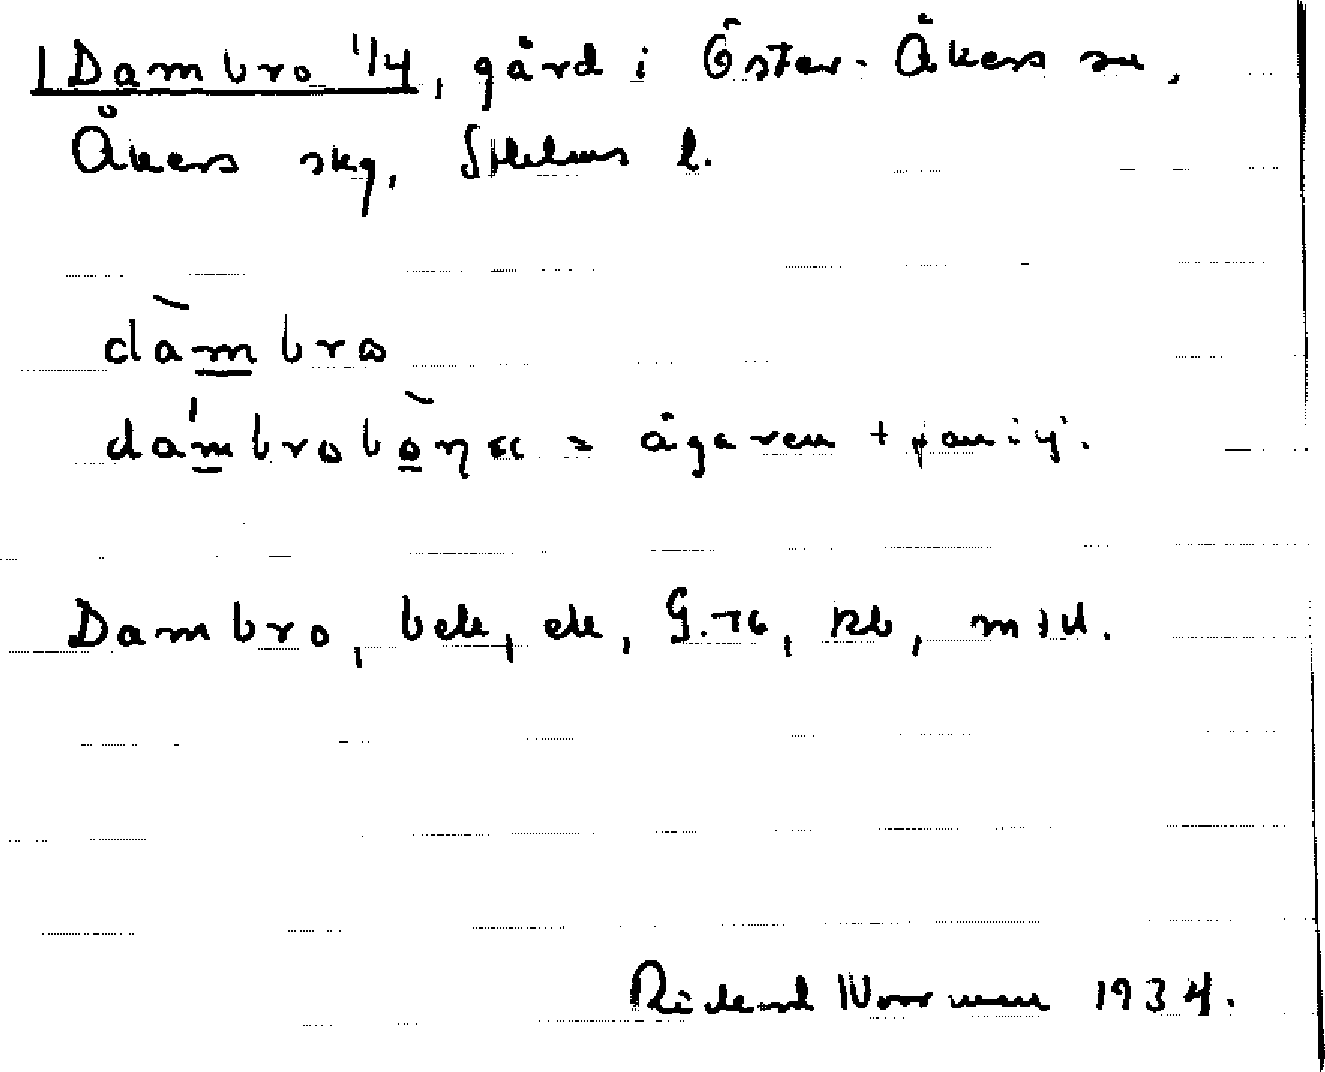 Dambro 1/4, gård i Öster-Åkers sn,
Åkers skg, Sthlms l.
dàmbro
dámbrobòn = ägaren + familj.
Dambro, bek, ek, G.76, Rb, mtl.
Rickard Norrman 1934.